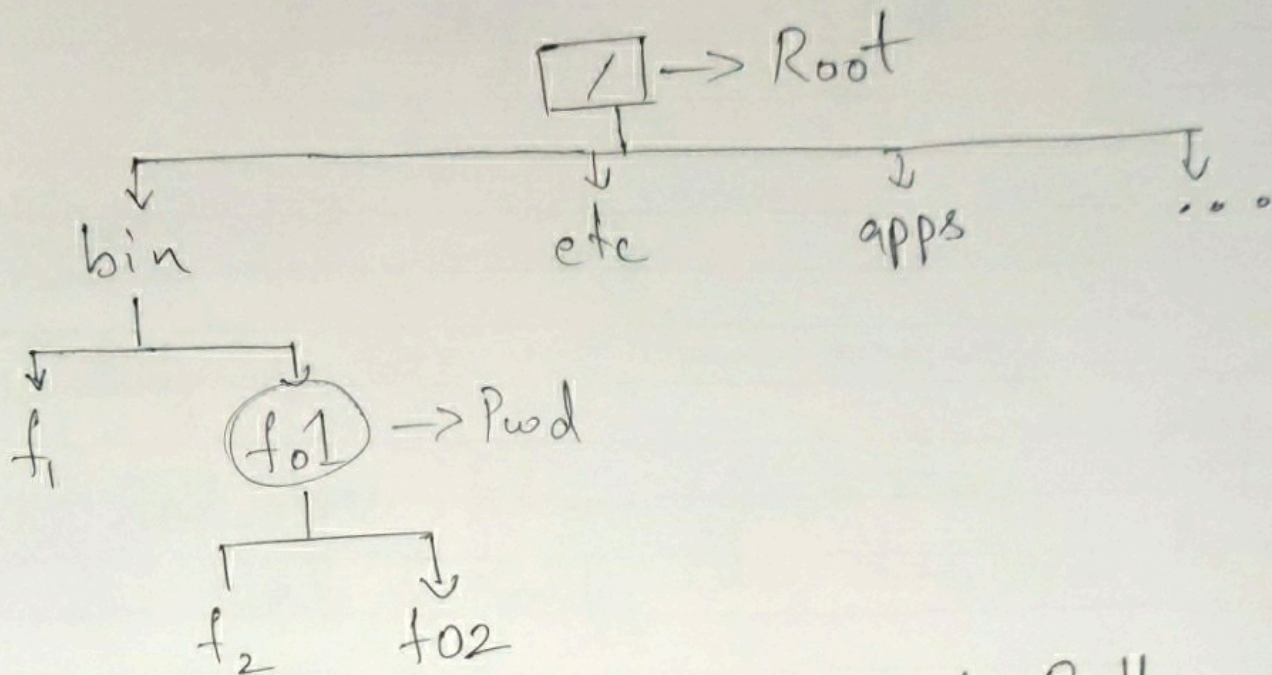 / -> Root
bin etc apps ...
f1 fo1 -> Pwd
f2 fo2